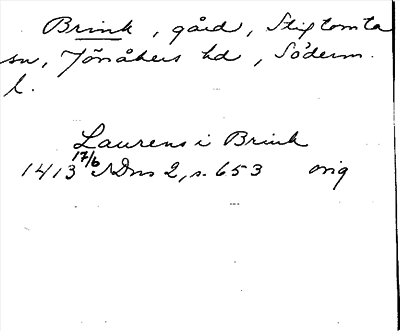 Brink, gård, Stigtomta
sn, Jönåkers hd, Söderm.
l.
Laurens i Brink
1413 17/6 SDns 2, s. 653 orig